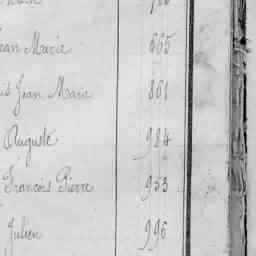 Jean Marie 665
is Jean Marie 861
Auguste 984
François Pierre 953
Julien 996